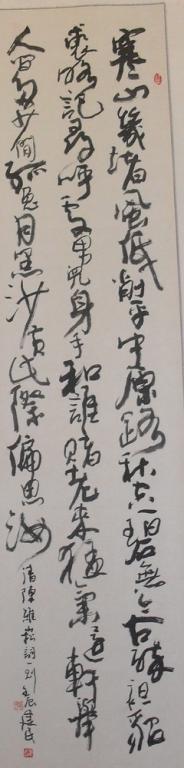 寒山幾堵風低削平中原路秋空一碧無今古醉袒貂
裘略記尋呼處男兒身手和誰賭老來猛氣還軒舉
人間多少閒狐兔月黑沙黃此際偏思汝
清陳維崧詞一則壬辰